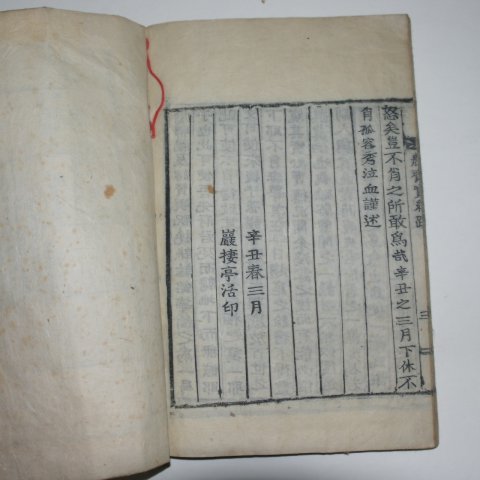 恕矣豈不肖之所敢爲哉辛丑之三月下休不
肖孤容秀泣血謹述
辛丑春三月
巖棲亭活印
三